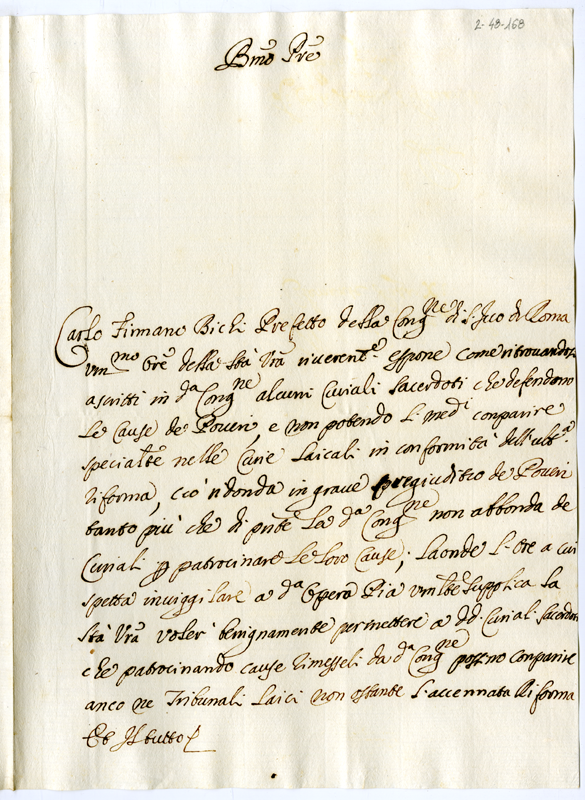 2-48-168
Bmo Prẽ
Carlo Firmano Bichi Prefetto della Congne di S. Ivo di Roma
Umno Orẽ della Stà Vrã riverente. espone come ritrovandosi
ascritti in da Congne alcuni Curiali Sacerdoti che defendono
le Cause de Poveri, e non potendo l. medi conparire
specialtẽ nelle Curie Laicali in conformità dell'ulta
riforma, ciò ridonda in grave pregiuditio de Poveri
tanto più che di pntẽ la da Congne non abbonda de
Curiali p patrocinare le loro Cause; laonde l. Ore a cui
spetta invigilare a da Opera Pia umltẽ supplica la
Stà Vrã voler benignamente permettere a dd. Curiali Sacerdoti
che patrocinando cause rimesseli da da Congne possno conparire
anco ne Tribunali Laici non ostante l'accennata Riforma
Et Il tutto